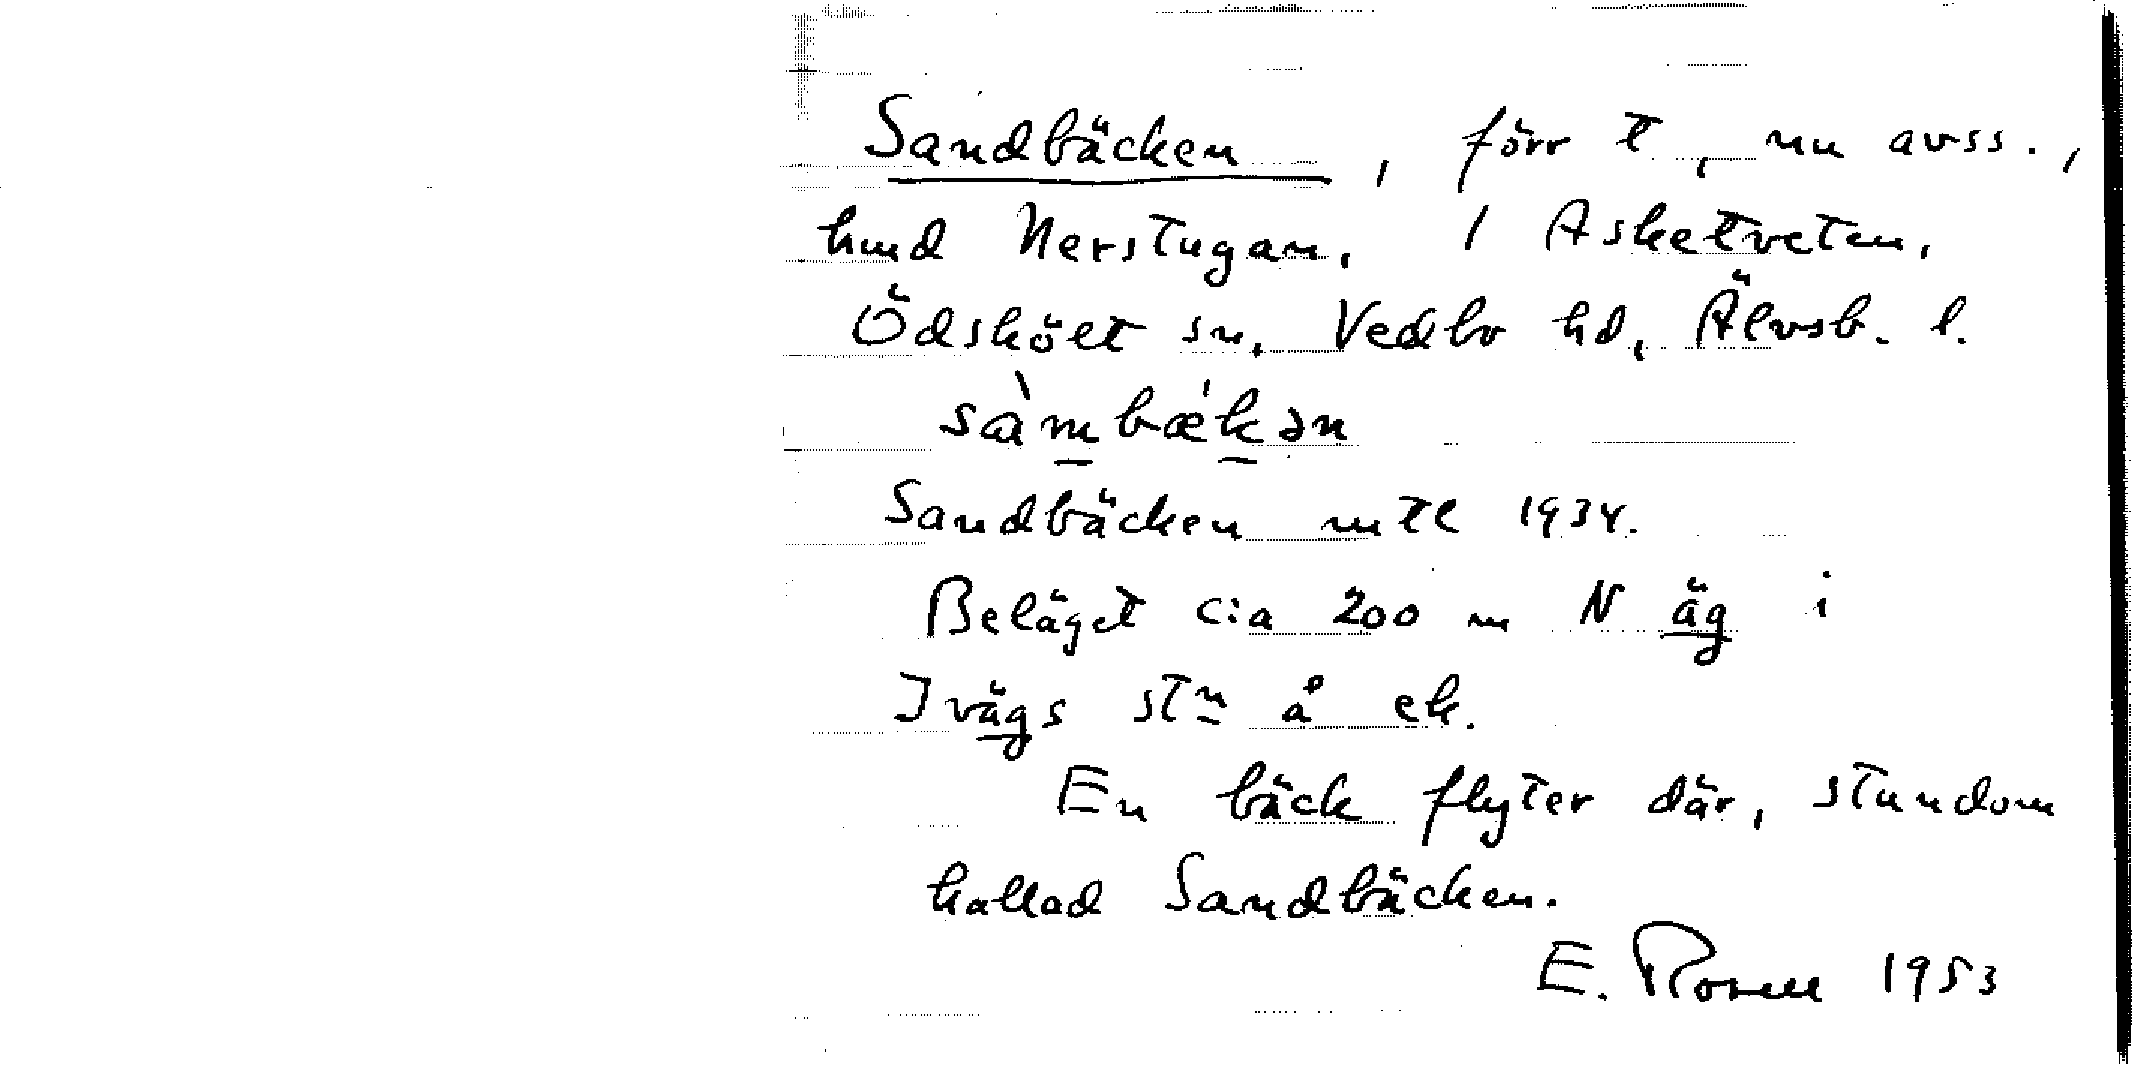 Sandbäcken, förr t, nu avss.,
hmd Nerstugan, 1 Asketveten,
Ödskölt sn, Vedbo hd, Älvsb. l.
sàmbæ̀kən
Sandbäcken mtl 1934.
Beläget c:a 200 m N äg i
Ivägs stn å ek.
En bäck flyter där, stundom
kallad Sandbäcken.
E. Rosell 1953